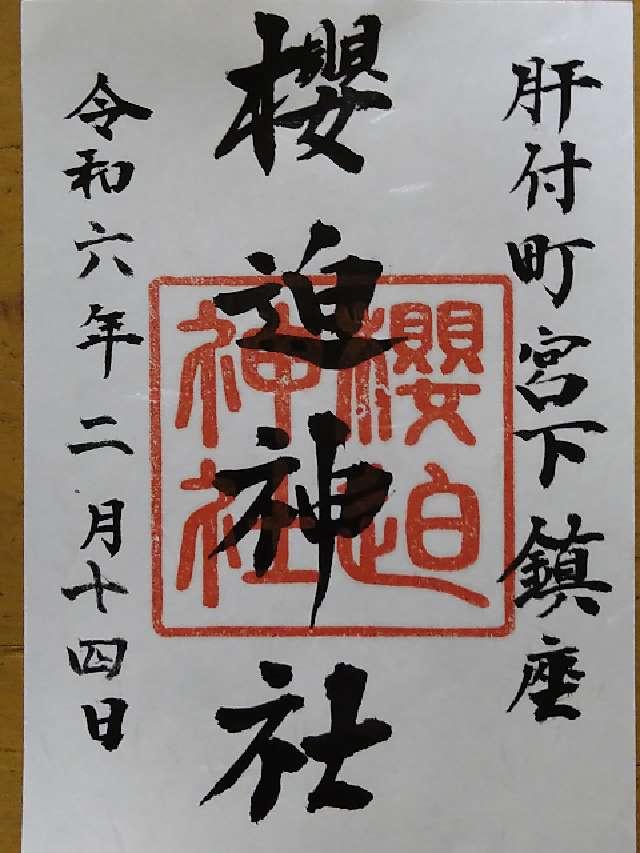 肝付町宮下鎮座
櫻迫神社
櫻迫
神社
令和六年二月十四日